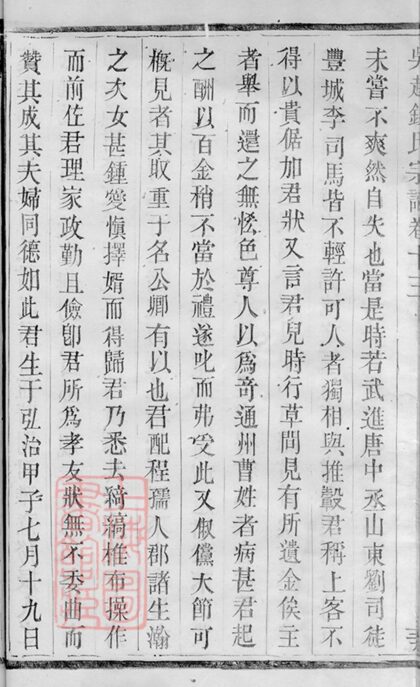 未嘗不爽然自失也當是時若武進唐中丞山東劉司徒
豐城李司馬皆不輕許可人者獨相與推轂君稱上客不
得以貴倨加君狀又言君兒時行草間見有所遺金俟主
者舉而還之無恡色尊人以爲奇通州曹姓者病甚君起
之酬以百金稍不當於禮遂叱而弗受此又俶儻大節可
槪見者其取重于名公卿有以也君配程孺人郡諸生瀚
之次女甚鍾愛愼擇婿而得歸君乃悉去綺縞椎布操作
而前佐君理家政勤且儉卽君所爲孝友狀無不委曲而
贊其成其夫婦同德如此君生于弘治甲子七月十九日